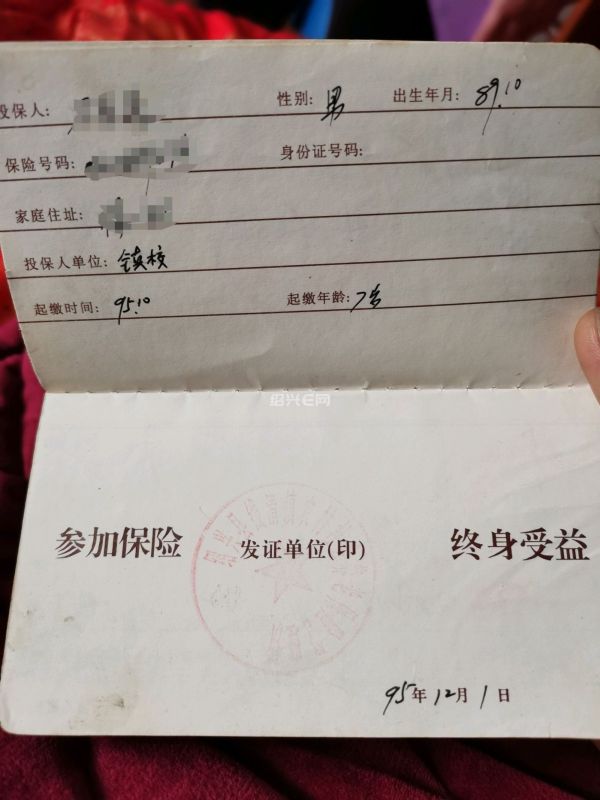 投保人: 性别: 男 出生年月: 89.10
保险号码: 身份证号码:
家庭住址:
投保人单位: 镇校
起缴时间: 95.10 起缴年龄: 7岁
绍兴E网
参加保险 发证单位(印) 终身受益
95年12月1日